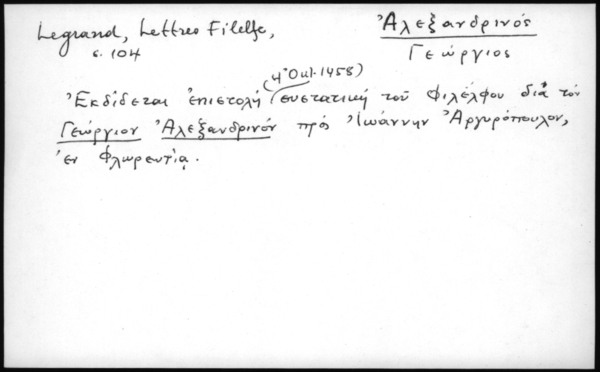 Legrand, Lettres Filelfe,
σ. 104
Ἀλεξανδρινός
Γεώργιος
(4 Ὀκτ. 1458)
Ἐκδίδεται ἐπιστολή συστατική τοῦ Φιλέλφου διά τόν
Γεώργιον Ἀλεξανδρινόν πρός Ἰωάννην Ἀργυρόπουλον,
ἐν Φλωρεντίᾳ.